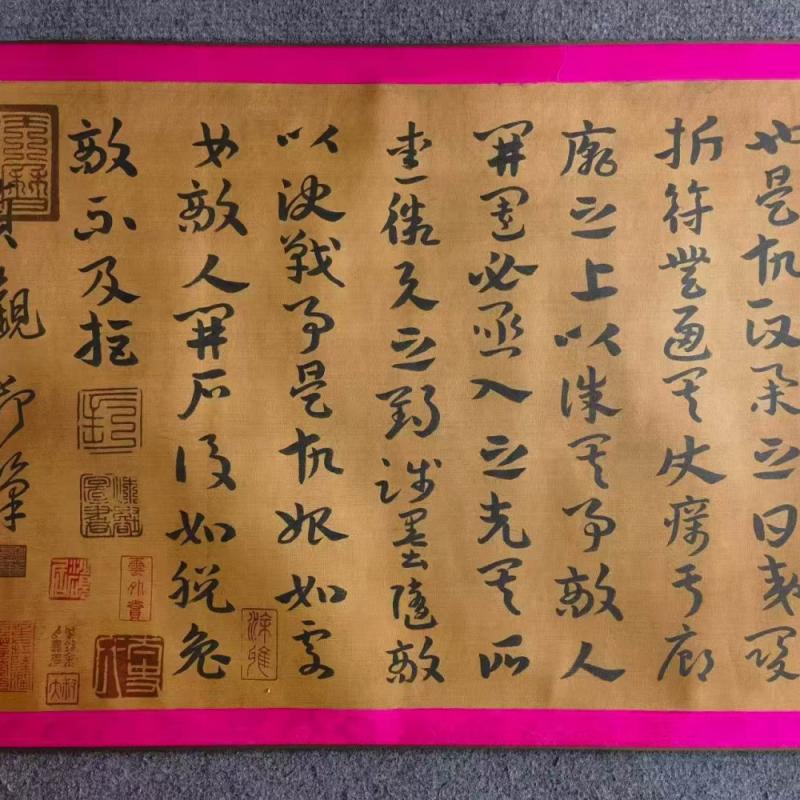 也是故政舉之日夷關
折符無通其使厲于廊
廟之上以誅其事敵人
開闔必亟入之先其所
愛微與之期踐墨隨敵
以決戰事是故始如處
女敵人開戶後如脫兔
敵不及拒
觀